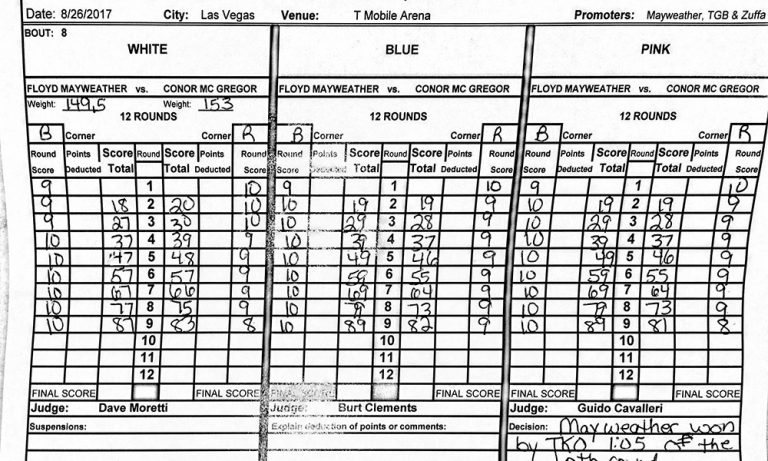 Date: 8/26/2017 City: Las Vegas Venue: T Mobile Arena Promoters: Mayweather, TGB & Zuffa
BOUT: 8
WHITE BLUE PINK
FLOYD MAYWEATHER vs. CONOR MC GREGOR FLOYD MAYWEATHER vs. CONOR MC GREGOR FLOYD MAYWEATHER vs. CONOR MC GREGOR
Weight: 149,5 Weight: 153
12 ROUNDS 12 ROUNDS 12 ROUNDS
B Corner Corner R B Corner Corner R B Corner Corner R
Round Points Score Round Score Points Round Round Points Score Round Score Points Round Round Points Score Round Score Points Round
Score Deducted Total Total Deducted Score Score Deducted Total Total Deducted Score Score Deducted Total Total Deducted Score
9 1 10 9 1 10 9 1 10
9 18 2 20 10 10 19 2 19 9 10 19 2 19 9
9 27 3 30 10 10 29 3 28 9 10 29 3 28 9
10 37 4 39 9 10 39 4 37 9 10 39 4 37 9
10 47 5 48 9 10 49 5 46 9 10 49 5 46 9
10 57 6 57 9 10 59 6 55 9 10 59 6 55 9
10 67 7 66 9 10 69 7 64 9 10 69 7 64 9
10 77 8 75 9 10 79 8 73 9 10 79 8 73 9
10 87 9 83 8 10 89 9 82 9 10 89 9 81 8
10 10 10
11 11 11
12 12 12
FINAL SCORE FINAL SCORE FINAL SCORE FINAL SCORE FINAL SCORE FINAL SCORE
Judge: Dave Moretti Judge: Burt Clements Judge: Guido Cavalleri
Suspensions: Explain deduction of points or comments: Decision: Mayweather won
by TKO 1:05 of the